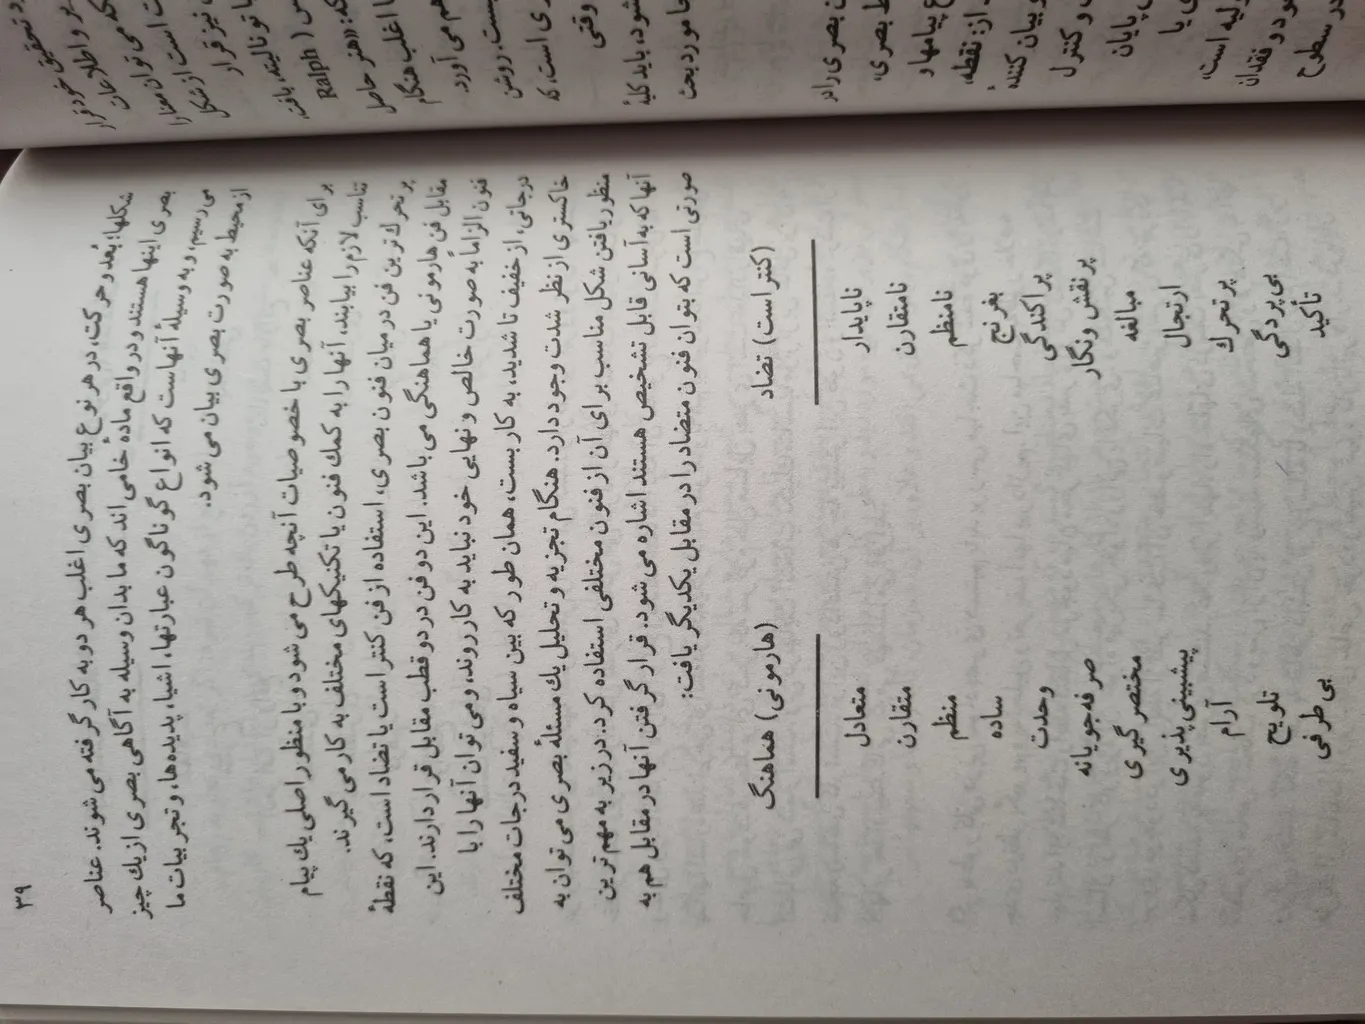 ۳۹
شکلها؛ بُعد و حرکت، در هر نوع بیان بصری اغلب هر دو به کار گرفته می شوند. عناصر
بصری اینها هستند و در واقع مادهٔ خامی اند که ما بدان وسیله به آگاهی بصری از یك چیز
می رسیم، و به وسیلهٔ آنهاست که انواع گوناگون عبارتها، اشیا، پدیده ها، و تجربیات ما
از محیط به صورت بصری بیان می شود.
برای آنکه عناصر بصری با خصوصیات آنچه طرح می شود و با منظور اصلی یك پیام
تناسب لازم را بیابند، آنها را به کمك فنون یا تکنیکهای مختلف به کار می گیرند.
پر تحرك ترین فن در میان فنون بصری، استفاده از فن کنتراست یا تضاد است، که نقطهٔ
مقابل فن هارمونی یا هماهنگی می باشد. این دو فن در دو قطب مقابل قرار دارند. این
فنون الزاماً به صورت خالص و نهایی خود نباید به کار روند، و می توان آنها را با
درجاتی، از خفیف تا شدید، به کار بست، همان طور که بین سیاه و سفید درجات مختلف
خاکستری از نظر شدت وجود دارد. هنگام تجزیه و تحلیل یك مسئلهٔ بصری می توان به
منظور یافتن شکل مناسب برای آن از فنون مختلفی استفاده کرد: در زیر به مهم ترین
آنها که به آسانی قابل تشخیص هستند اشاره می شود. قرار گرفتن آنها در مقابل هم به
صورتی است که بتوان فنون متضاد را در مقابل یکدیگر یافت:
(کنتراست) تضاد (هارمونی) هماهنگ
ناپایدار متعادل
نامتقارن متقارن
نامنظم منظم
بغرنج ساده
پراکندگی وحدت
پر نقش و نگار صرفه جویانه
مبالغه مختصر گیری
ارتجال پیشبینی پذیری
پر تحرك آرام
بی پردگی تلویح
تأکید بی طرفی